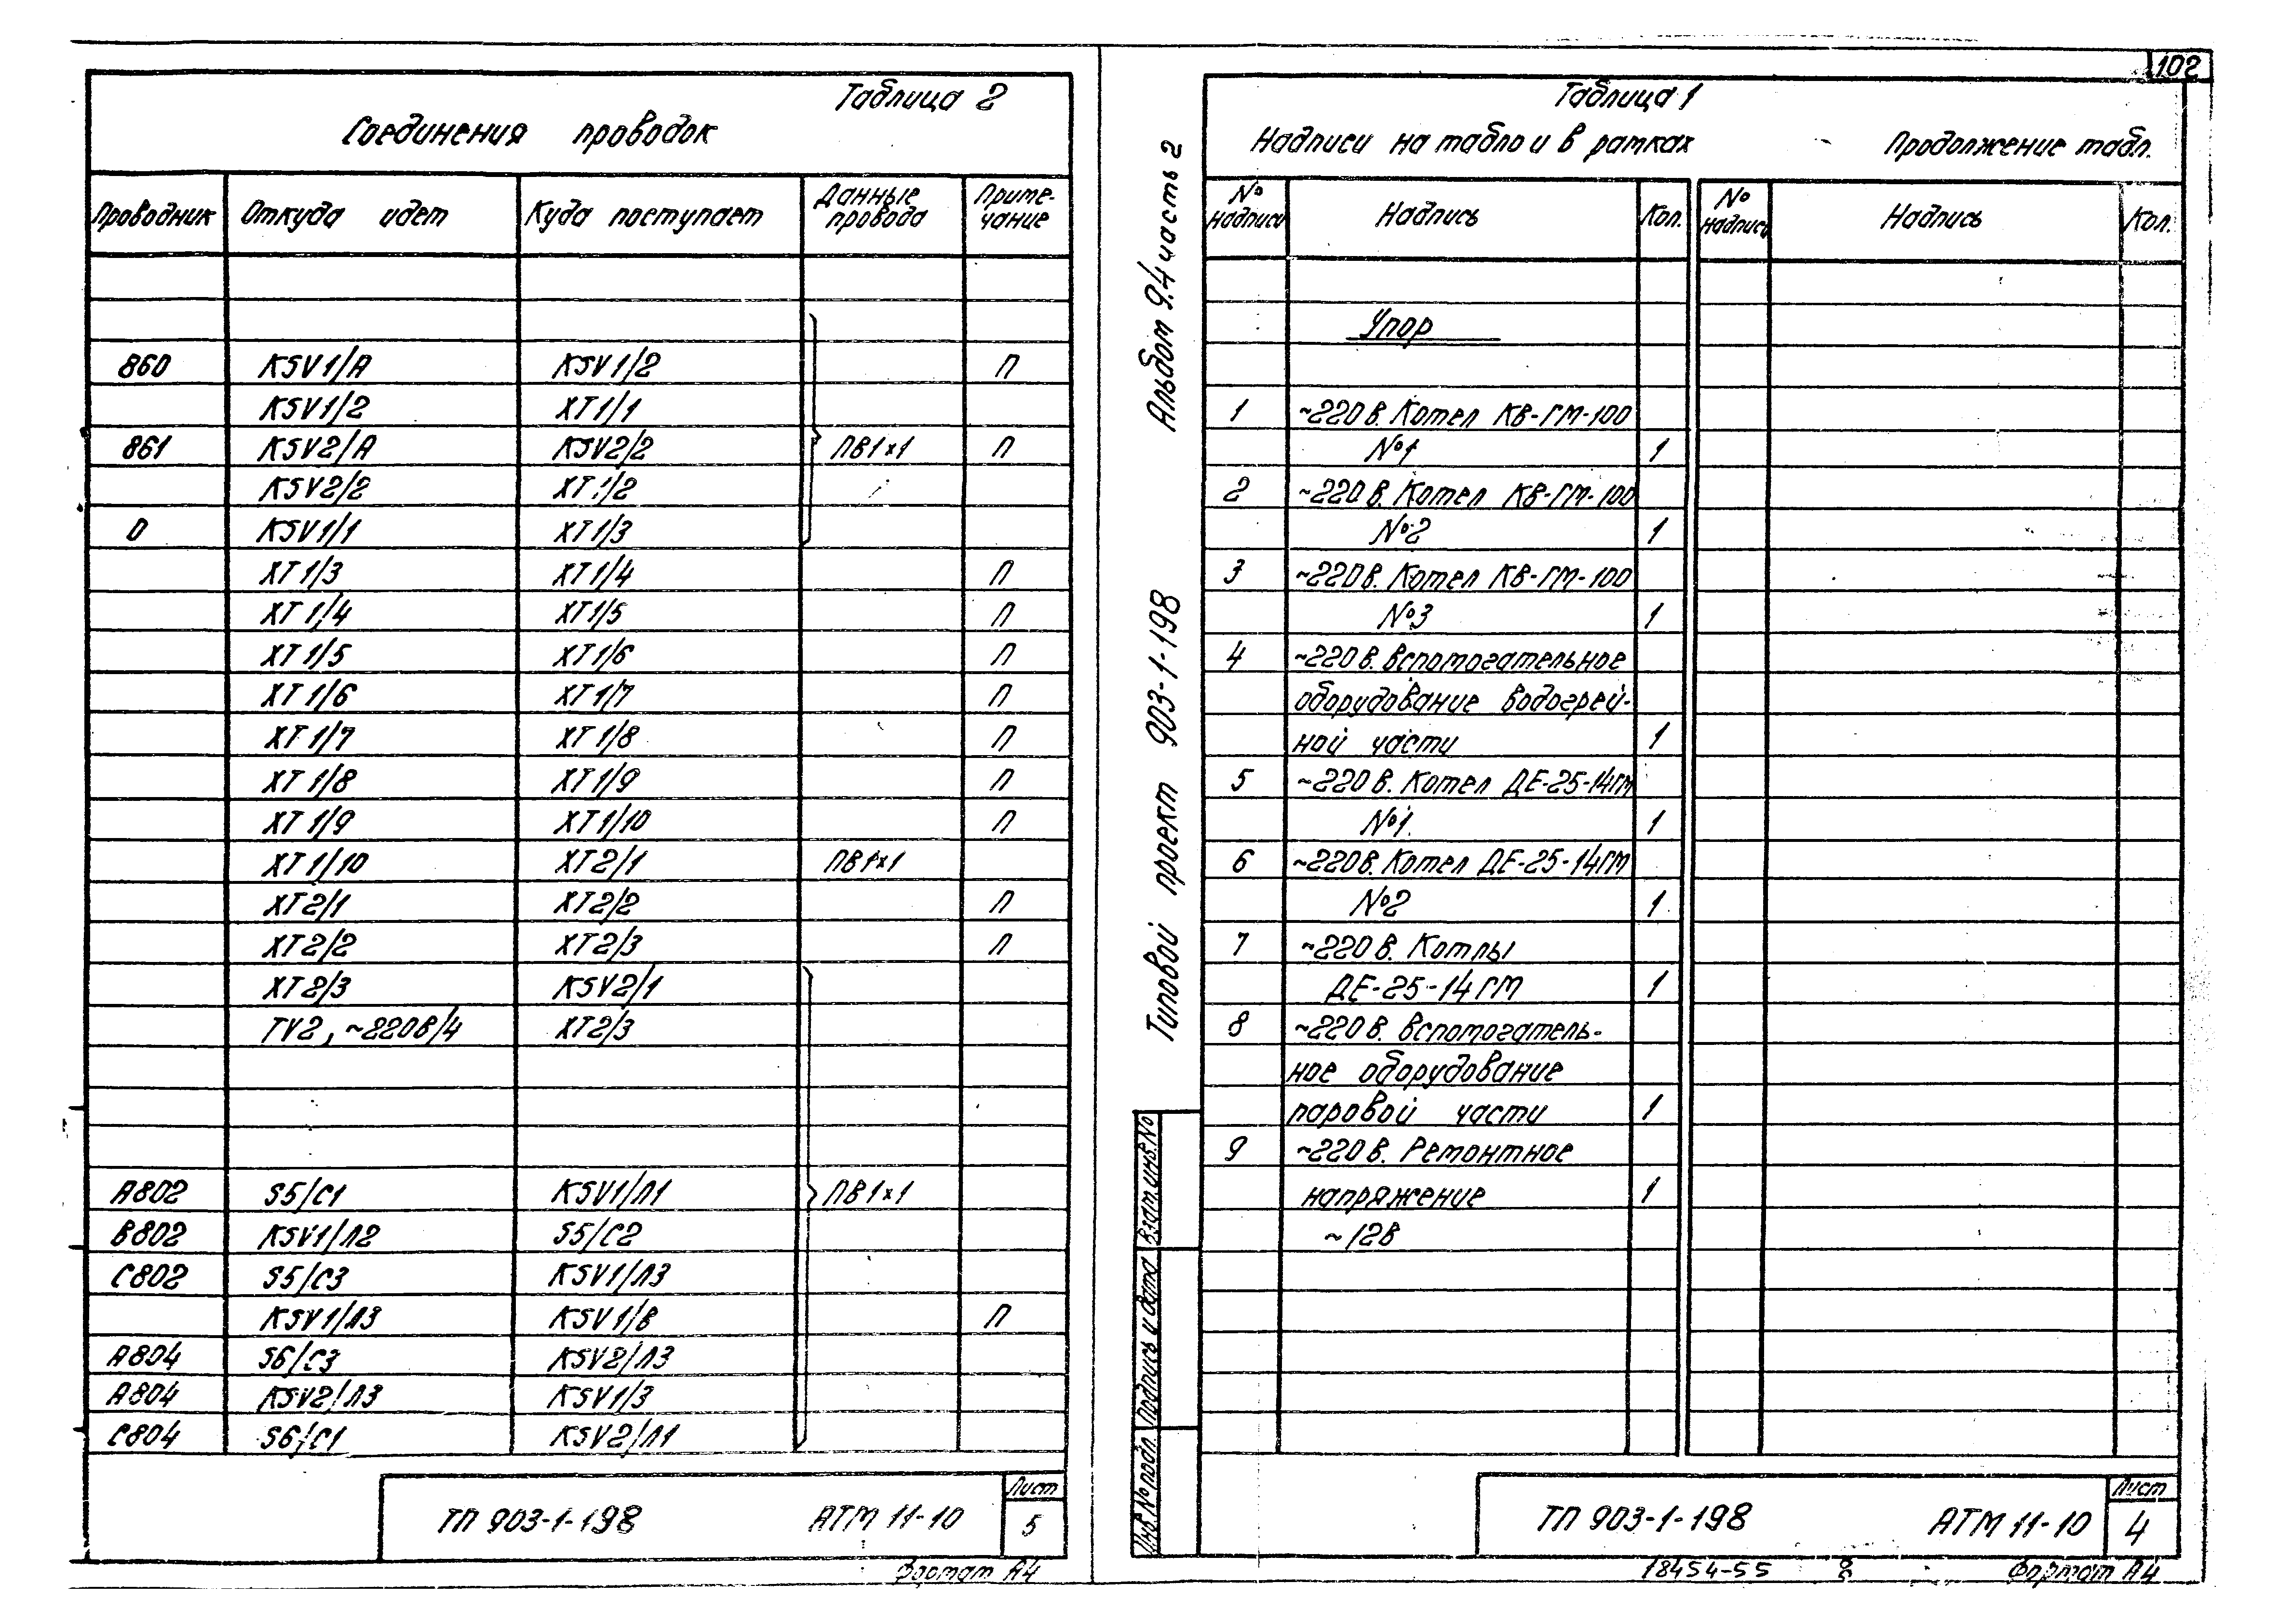 Таблица 2
Соединения проводок
Проводник Откуда идет Куда поступает Данные провода Приме-чание
860 KSV1/А KSV1/2 П
KSV1/2 XT1/1
861 KSV2/А KSV2/2 ПВ1×1 П
KSV2/2 XT1/2
0 KSV1/1 XT1/3
XT1/3 XT1/4 П
XT1/4 XT1/5 П
XT1/5 XT1/6 П
XT1/6 XT1/7 П
XT1/7 XT1/8 П
XT1/8 XT1/9 П
XT1/9 XT1/10 П
XT1/10 XT2/1 ПВ1×1
XT2/1 XT2/2 П
XT2/2 XT2/3 П
XT2/3 KSV2/1
TV2, ~220В/4 XT2/3
А802 S5/С1 KSV1/Л1 ПВ1×1
В802 KSV1/Л2 S5/С2
С802 S5/С3 KSV1/Л3
KSV1/Л3 KSV1/В П
А804 S6/С3 KSV2/Л3
А804 KSV2/Л3 KSV1/3
С804 S6/С1 KSV2/Л1
ТП 903-1-198 АТМ 11-10 Лист 5
Формат А4
102
Альбом 9.4 часть 2
Типовой проект 903-1-198
Взам.инв.№
Подпись и дата
Инв.№ подл.
Таблица 1
Надписи на табло и в рамках Продолжение табл.
№ надписи Надпись Кол. № надписи Надпись Кол.
Упор
1 ~220в. Котел КВ-ГМ-100
№1 1
2 ~220в. Котел КВ-ГМ-100
№2 1
3 ~220в. Котел КВ-ГМ-100
№3 1
4 ~220в. вспомогательное
оборудование водогрей-
ной части 1
5 ~220в. Котел ДЕ-25-14ГМ
№1. 1
6 ~220в. Котел ДЕ-25-14ГМ
№2 1
7 ~220в. Котлы
ДЕ-25-14ГМ 1
8 ~220в. вспомогатель-
ное оборудование
паровой части 1
9 ~220в. Ремонтное
напряжение 1
~12в
ТП 903-1-198 АТМ 11-10 Лист 4
18454-55 Формат А4